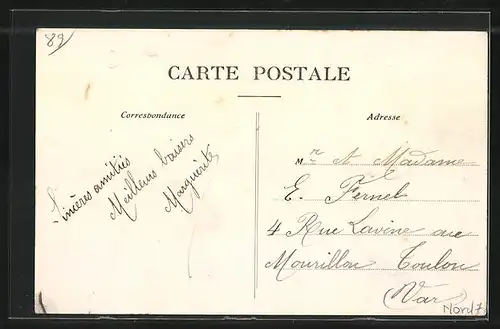 89
CARTE POSTALE
Correspondance
Adresse
Sincères amitiés
Meilleurs baisers
Marguerite
Mr et Madame
E. Fernel
4 Rue Lavène au
Mourillon Toulon
(Var)
Nord 7